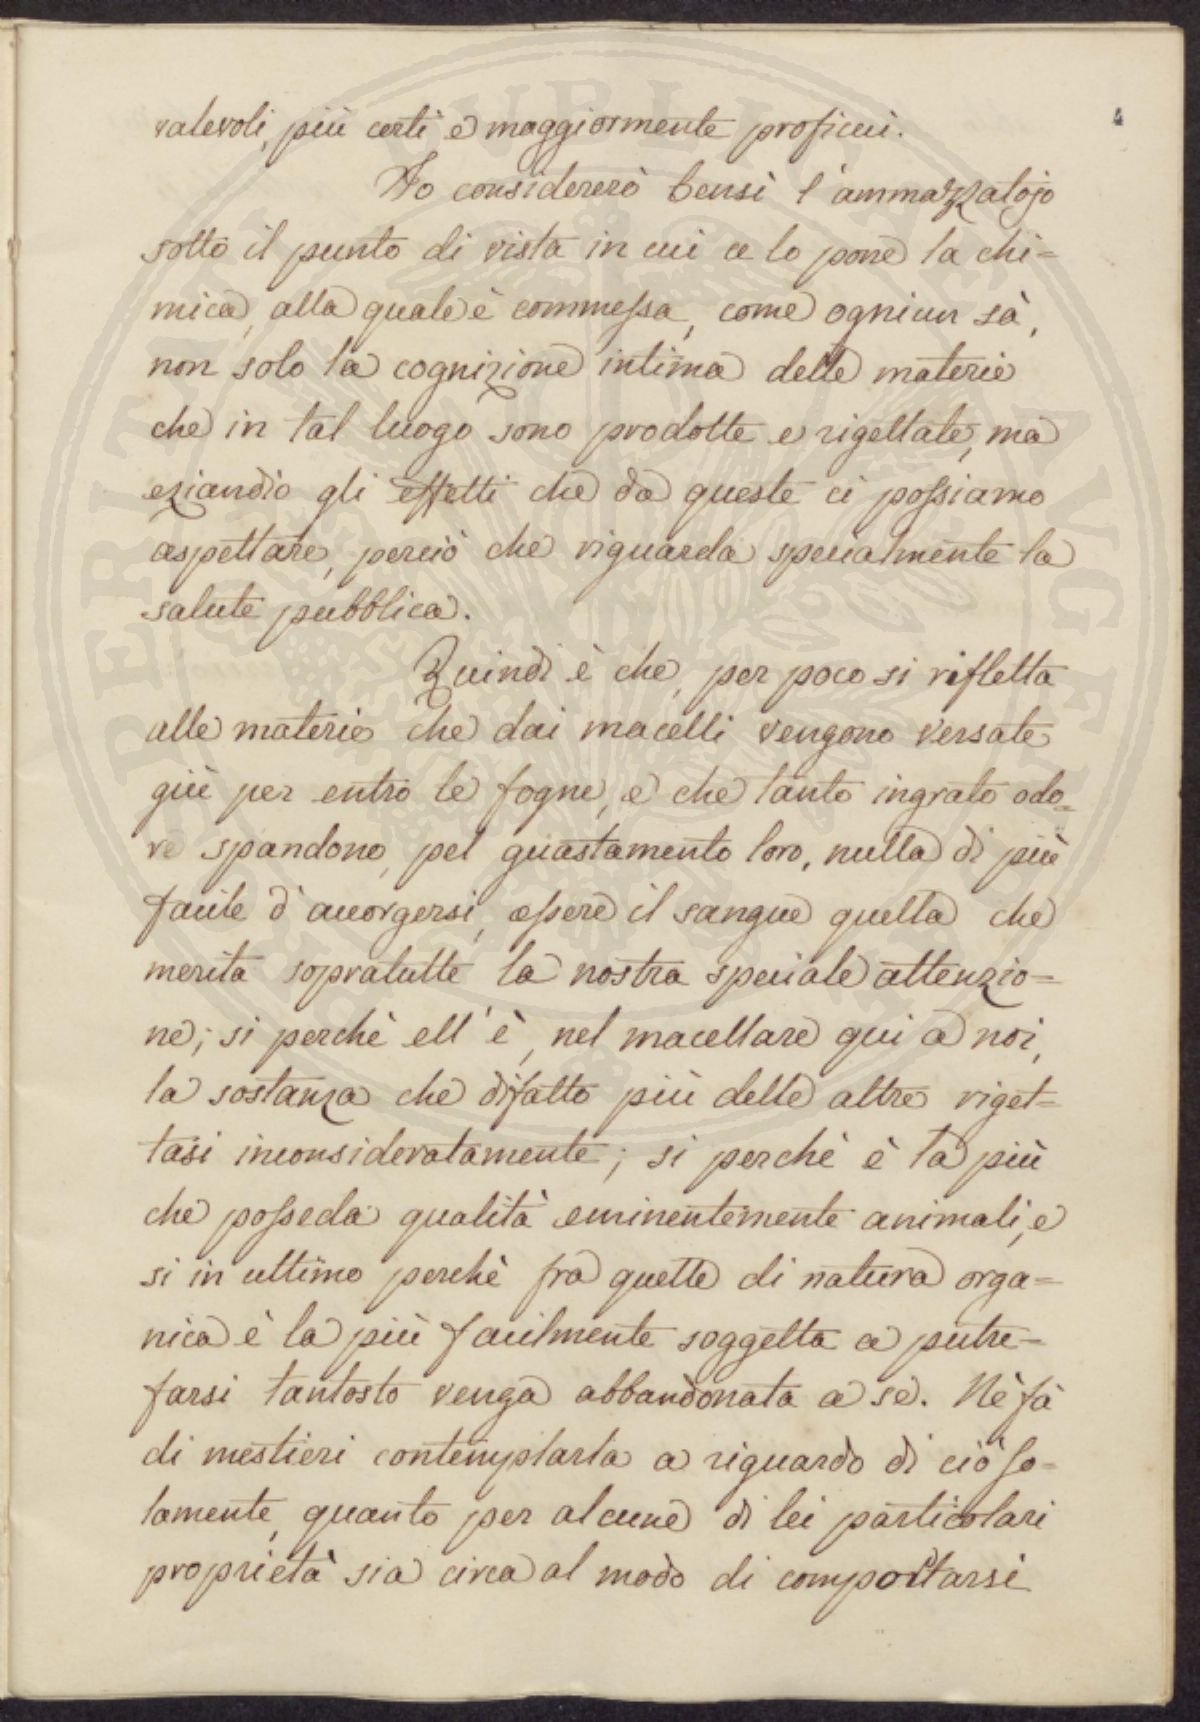 4
valevoli, più certi e maggiormente proficui.
Io considererò bensì l'ammazzatojo
sotto il punto di vista in cui ce lo pone la chi=
mica, alla quale è commessa, come ogniun sà,
non solo la cognizione intima delle materie
che in tal luogo sono prodotte e rigettate, ma
eziandio gli effetti che da queste ci possiamo
aspettare, perciò che riguarda specialmente la
salute pubblica.
Quindi è che, per poco si rifletta
alle materie che dai macelli vengono versate
giù per entro le fogne, e che tanto ingrato odo=
re spandono, pel guastamento loro, nulla di più
facile d'accorgersi, essere il sangue quella che
merita sopratutte la nostra speciale attenzio=
ne; si perchè ell'è, nel macellare qui a noi,
la sostanza che difatto più delle altre riget=
tasi inconsideratamente; si perchè è la più
che posseda qualità eminentemente animali, e
si in ultimo perchè fra quelle di natura orga=
nica è la più facilmente soggetta a putre=
farsi tantosto venga abbandonata a se. Nè fà
di mestieri contemplarla a riguardo di ciò so=
lamente, quanto per alcune di lei particolari
proprietà sia circa al modo di comportarsi
PERITIA
PUBLICA
AUGE